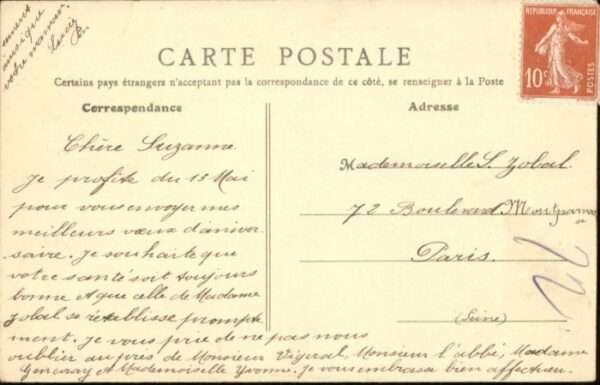 amies
ainsi que
votre maman.
Lucy
CARTE POSTALE
Certains pays étrangers n'acceptant pas la correspondance de ce côté, se renseigner à la Poste
Correspondance
Chère Suzanne
Je profite du 15 Mai
pour vous envoyer mes
meilleurs vœux d'anniver
saire. Je souhaite que
votre santé soit toujours
bonne et que celle de Madame
Zobal se rétablisse prompte
ment. Je vous prie de ne pas nous
oublier auprès de Monsieur Vigeral, Monsieur l'abbé, Madame
et Mademoiselle Yvonne. Je vous embrasse bien affectueu
Adresse
Mademoiselle S. Zobal.
72 Boulevard Montparnasse
Paris.
(Seine)
RÉPUBLIQUE FRANÇAISE
10c
POSTES